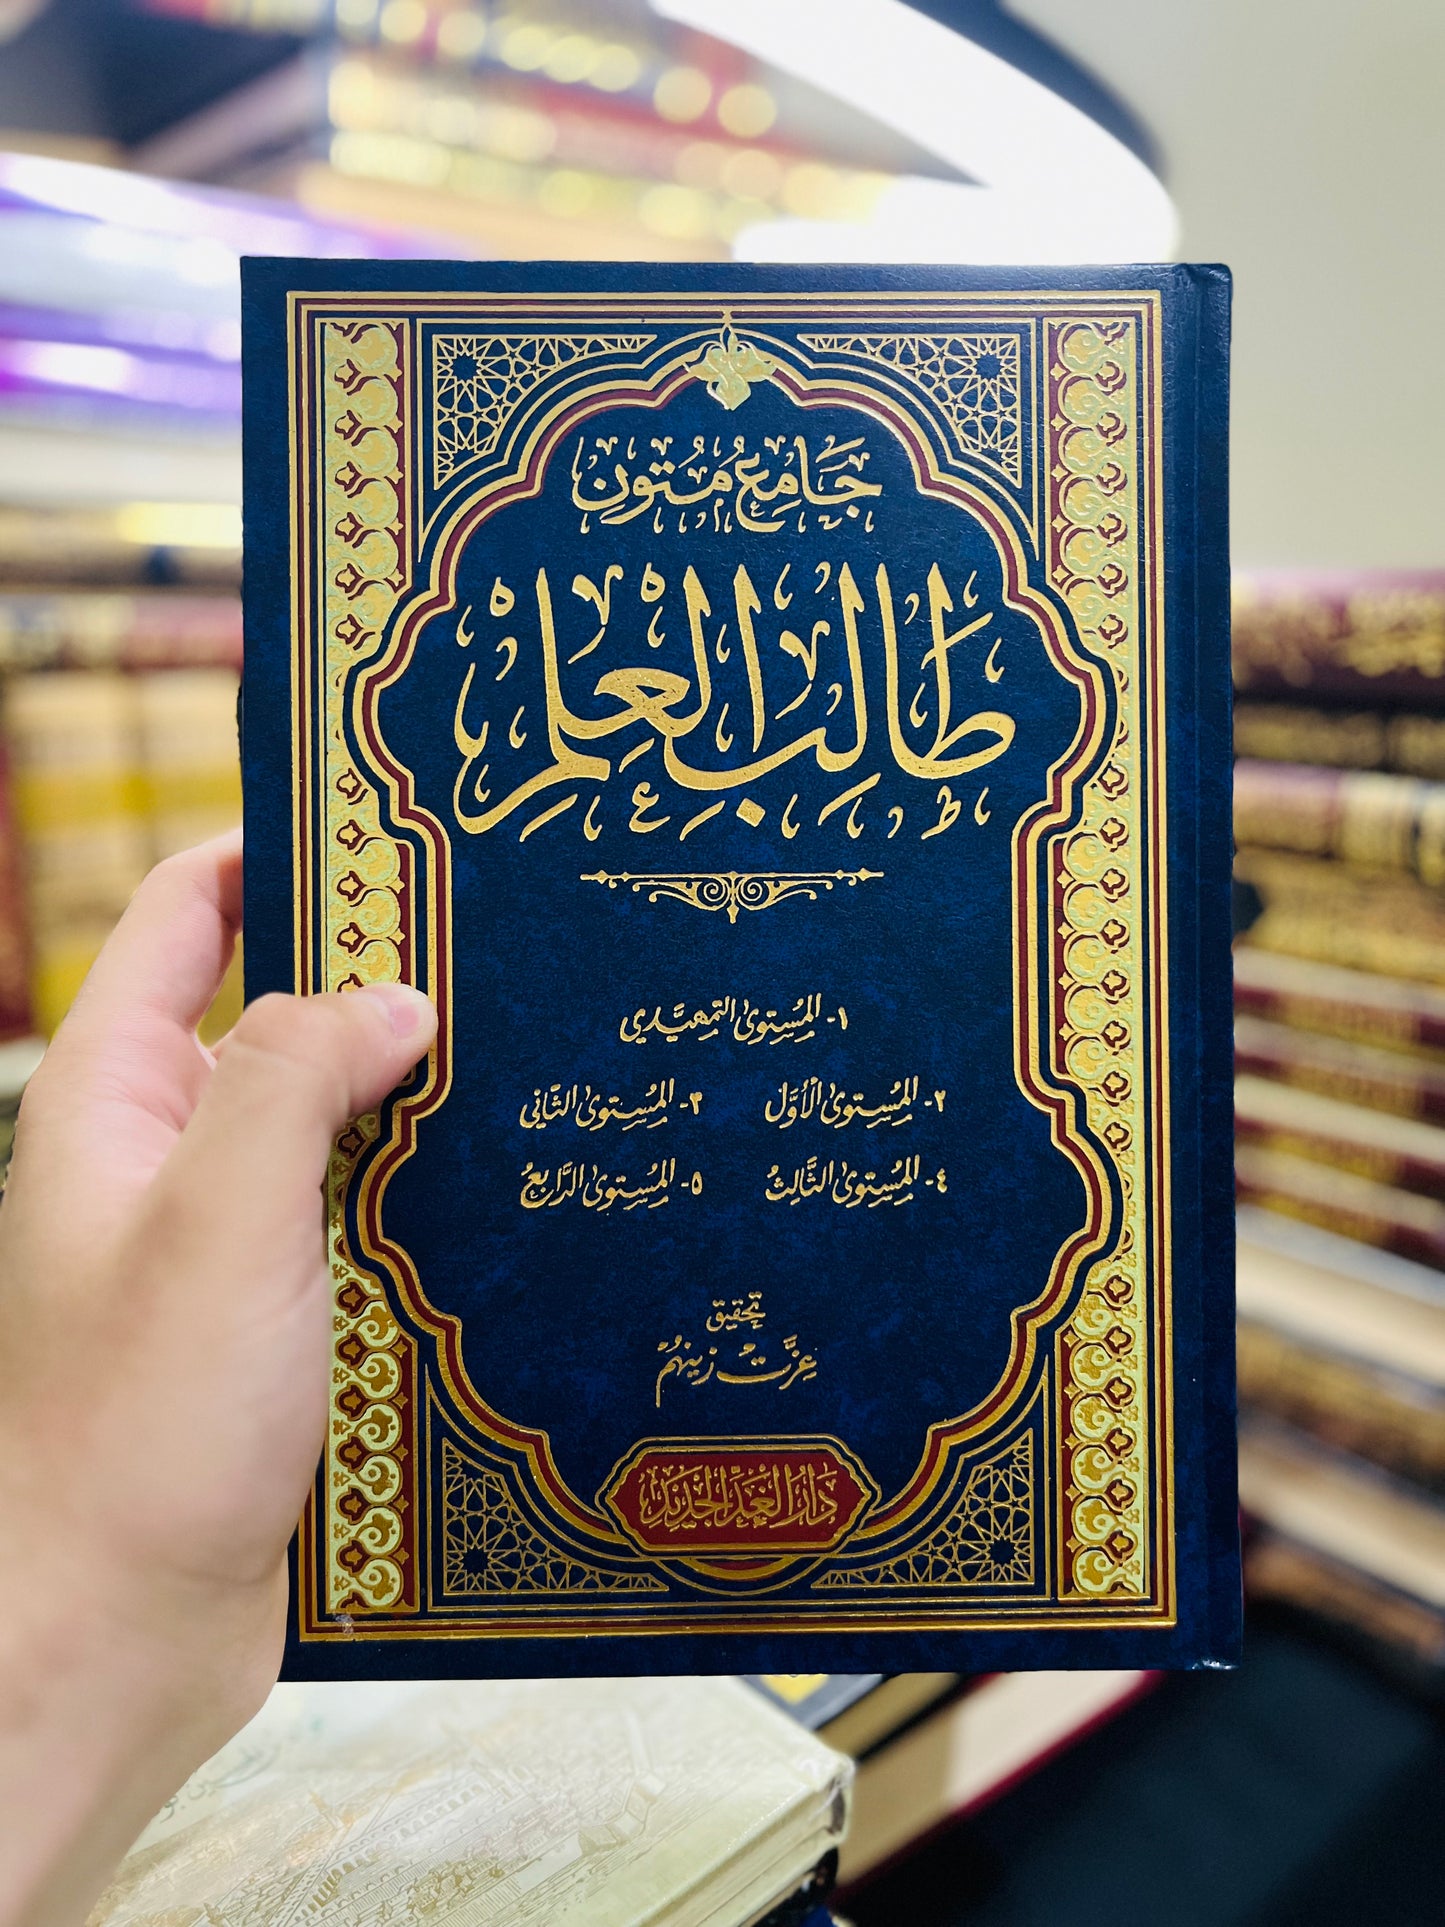 جَامِعُ مُتُونِ
طَالِبِ الْعِلْمِ
١- المُسْتوىٰ التمهيَّدي
٢- المُسْتوىٰ الْأَوَّل
٣- المُسْتوىٰ الثَّاني
٤- المُسْتوىٰ الثَّالِثُ
٥- المُسْتوىٰ الرَّابِعُ
تحقيق
عِزَّتْ زينهُمْ
دَارُ الْغَدِ الْجَدِيدِ